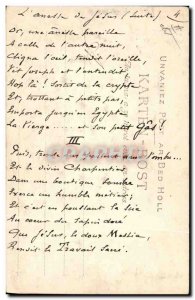 L'anesse de Jésus (suite)
4
Or, une ânesse pareille
A celle de l'autre nuit,
Cligna l'œil, tendit l'oreille,
Vit Joseph et l'entendit
Hop là ! Sortit de la crypte
Et, trottant à petits pas,
Emporta jusqu'en Egypte
La Vierge... et son petit Gâs !
III
Puis, tendre
Et le divin Charpentier
Dans une boutique sombre
Exerce un humble métier ;
Et c'est en poussant la scie
Au cœur du sapin doré
Que Jésus, le doux Messie,
Rendit le Travail sacré.